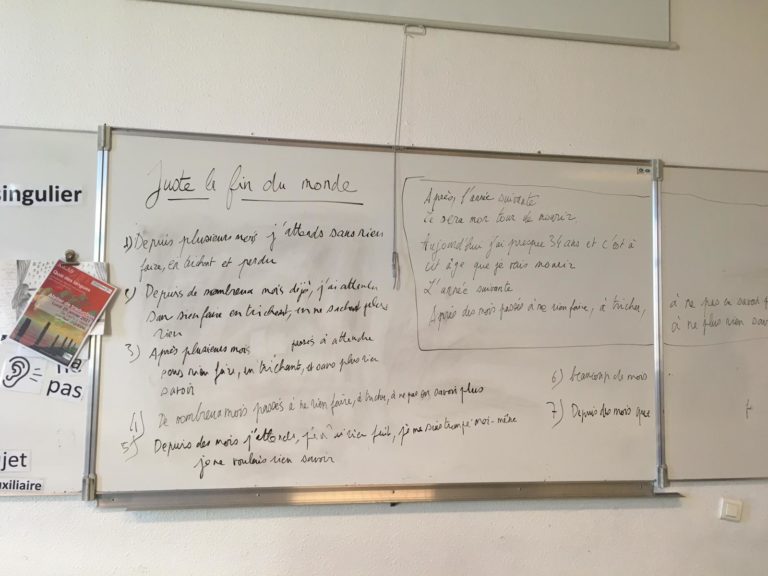 singulier
pas
jet
uxiliaire
Quai des langues
Juste la fin du monde
1) Depuis plusieurs mois j'attends sans rien
faire, en trichant et perdu
2) Depuis de nombreux mois déjà, j'ai attendu
sans rien faire en trichant, en ne sachant plus
rien
3) Après plusieurs mois passés à attendre
sans rien faire, en trichant, et sans plus rien
savoir
4) De nombreux mois passés à ne rien faire, à tricher, à ne pas en savoir plus
5) Depuis des mois j'attends, je n'ai rien fait, je me suis trompé moi-même
je ne voulais rien savoir
Après l'année suivante
ce sera mon tour de mourir.
Aujourd'hui j'ai presque 34 ans et c'est à
cet âge que je vais mourir
L'année suivante
Après des mois passés à ne rien faire, à tricher,
à ne pas en savoir p
à ne plus rien sav
6) beaucoup de mois
7) Depuis des mois que